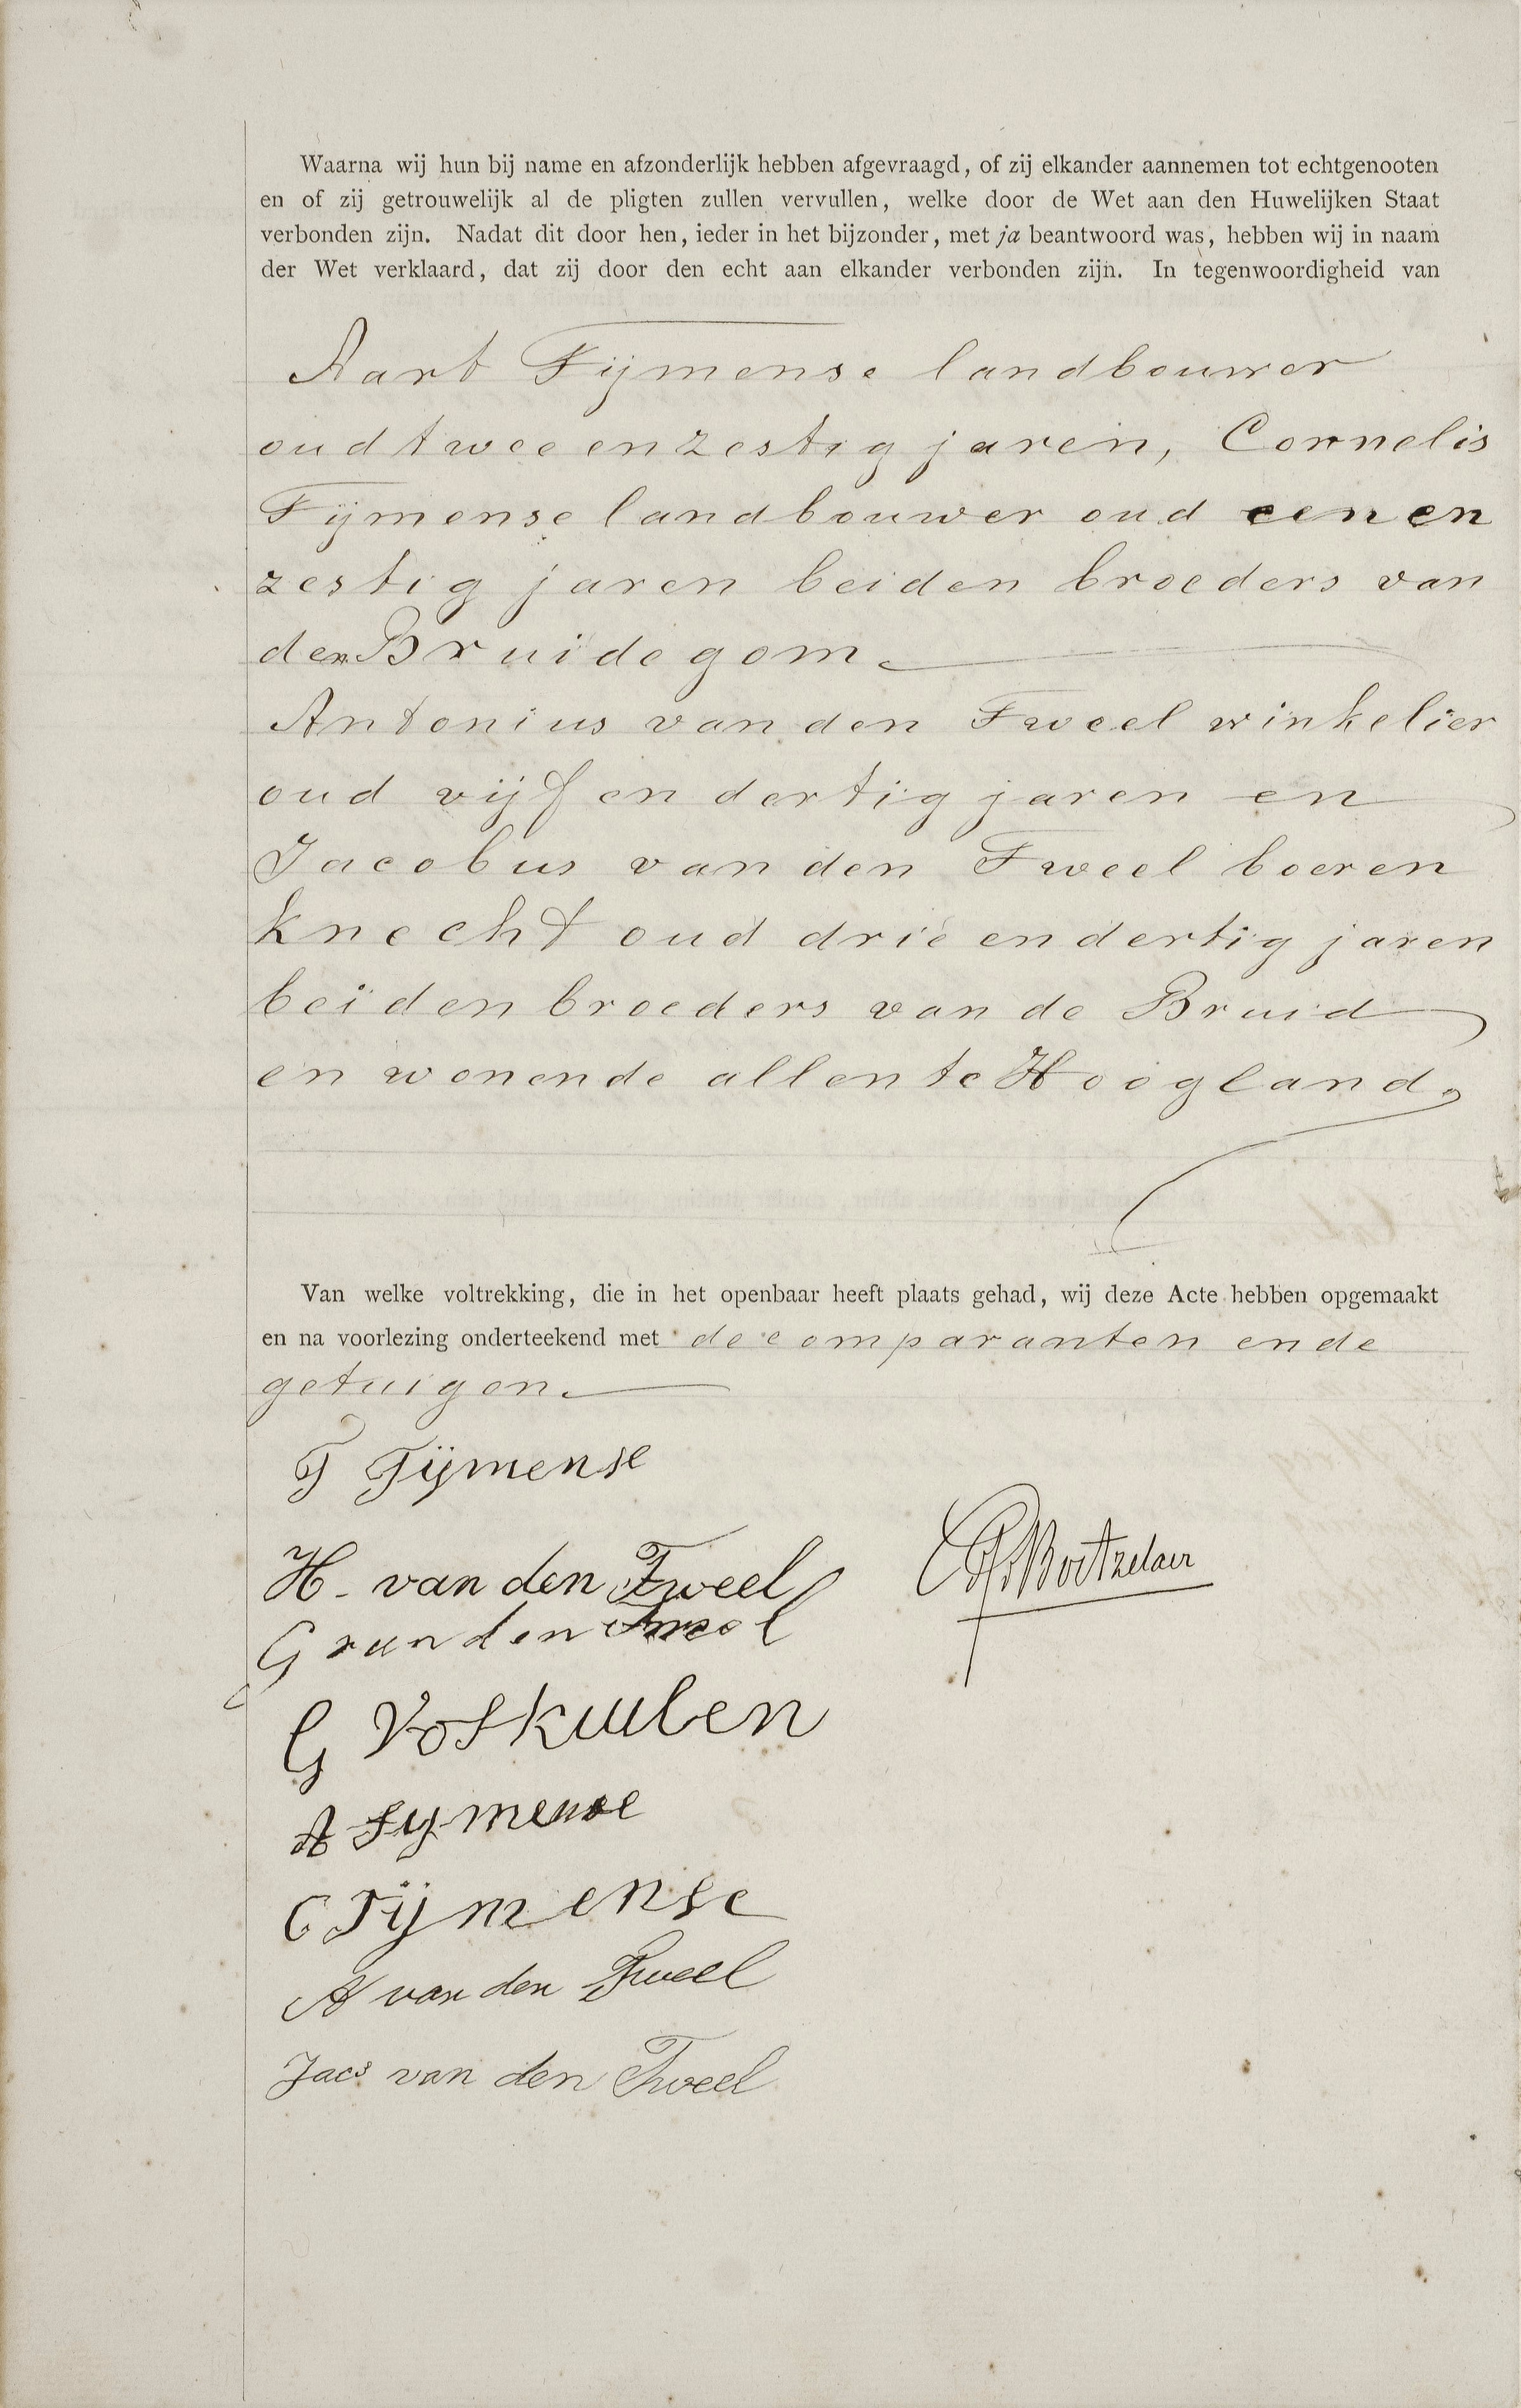 Waarna wij hun bij name en afzonderlijk hebben afgevraagd, of zij elkander aannemen tot echtgenooten
en of zij getrouwelijk al de pligten zullen vervullen, welke door de Wet aan den Huwelijken Staat
verbonden zijn. Nadat dit door hen, ieder in het bijzonder, met ja beantwoord was, hebben wij in naam
der Wet verklaard, dat zij door den echt aan elkander verbonden zijn. In tegenwoordigheid van
Aart Tijmense landbouwer
oud twee en zestig jaren, Cornelis
Tijmense landbouwer oud een en
zestig jaren beiden broeders van
den Bruidegom.
Antonius van den Tweel winkelier
oud vijf en dertig jaren en
Jacobus van den Tweel boeren
knecht oud drie en dertig jaren
beiden broeders van de Bruid
en wonende allen te Hoogland,
Van welke voltrekking, die in het openbaar heeft plaats gehad, wij deze Acte hebben opgemaakt
en na voorlezing onderteekend met de comparanten en de
getuigen.
T Tijmense
H. van den Tweel
G van den Tweel
Boetzelaer
G Voskuilen
A Tymense
C Tijmense
A van den Tweel
Jacs van den Tweel